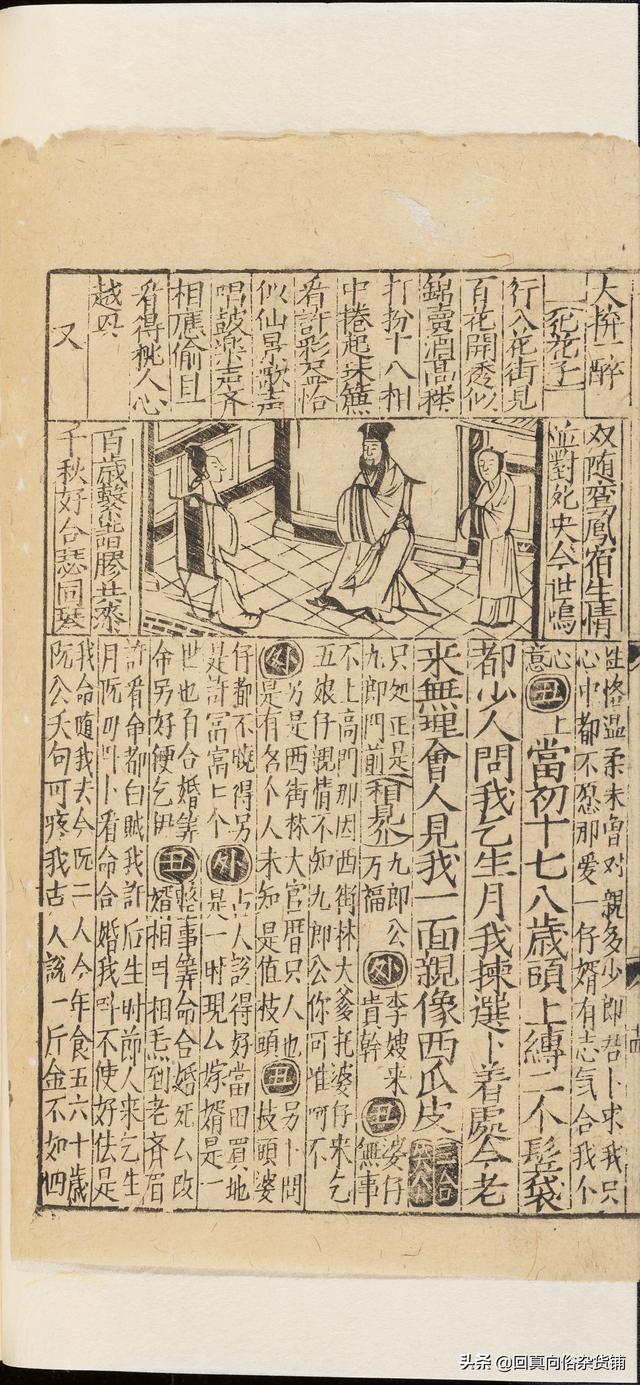 大拚一醉
死花子
行入花街見
百花開透似
錦賣酒高樓
打扮十八相
中捲起珠簾
看許彩盈恰
似仙景歌声
唱鼓樂声齐
相應偷且
看得桃人心
越
又
双随鸾鳳宿生情
並對死央今世鳴
百歲繫諧膠共漆
千秋好合瑟同琴
性格温柔未曾对親多少郎君卜求我只
心中都不愿那爱一仔婿有志气合我个
心
意
丑
上
當初十七八歲頭上縛一个髻袋
都少人問我乞生月我揀選卜着處今老
来無理會人見我一面親像西瓜皮
三合
只処正是
九郎門前
相見介
九郎公
万福
外
李嫂来
貴幹
丑
婆仔
無事
不上高門那因西街林大爹托婆仔来乞
五娘仔親情不知九郎公你可唯呵不
外
另是西街林大官厝只人也
是有名个人未知是值枝頭
丑
另卜問
枝頭婆
仔都不曉得另
是許冨窩上个
外
占人説得好當田買地
是一时現么嫁婿是一
世也百合婚筭
命另好便乞伊
丑
事筭命合婚死么改
婿相叫相毛到老齐眉
許看命都白賊我許后生时節人来乞生
月阮叫卜看命合婚我叫不使好佉是
我命随我去今阮二人今年食五六十歲
阮公夭句可疼我古人説一斤金不如四
头条 @回真向俗杂货铺